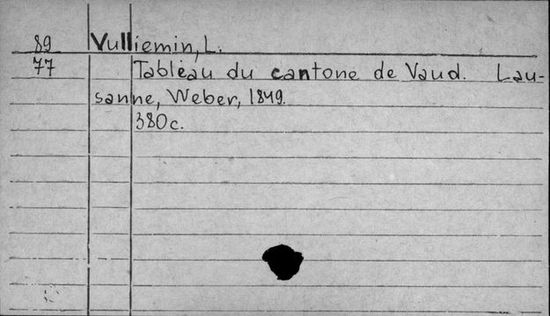 89 Vulliemin, L.
77 Tableau du cantone de Vaud. Lau-
sanne, Weber, 1849.
380c.